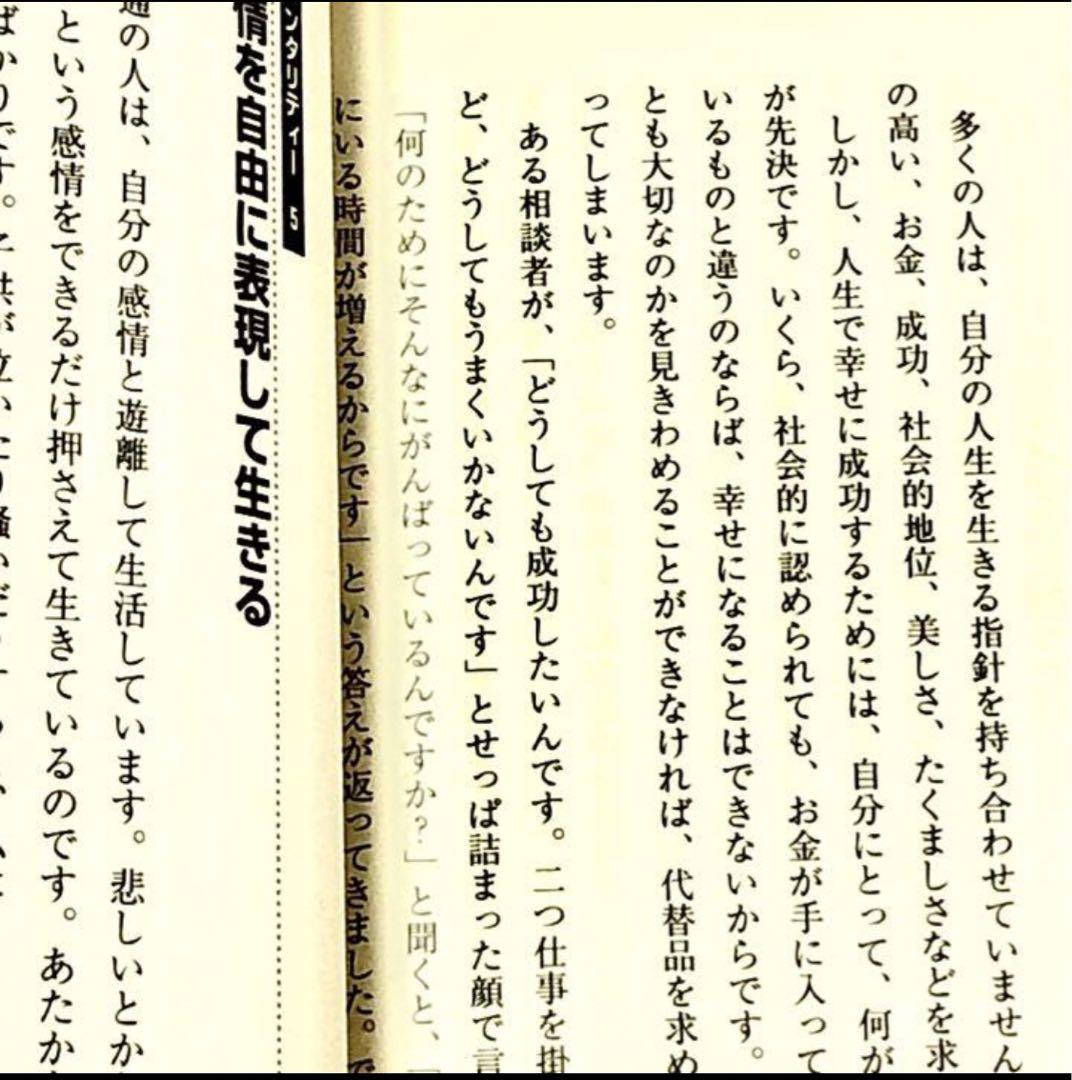 多くの人は、自分の人生を生きる指針を持ち合わせていません
の高い、お金、成功、社会的地位、美しさ、たくましさなどを求
しかし、人生で幸せに成功するためには、自分にとって、何が
が先決です。いくら、社会的に認められても、お金が手に入って
いるものと違うのならば、幸せになることはできないからです。
とも大切なのかを見きわめることができなければ、代替品を求め
ってしまいます。
ある相談者が、「どうしても成功したいんです。二つ仕事を掛
ど、どうしてもうまくいかないんです」とせっぱ詰まった顔で言
「何のためにそんなにがんばっているんですか?」と聞くと、「
にいる時間が増えるからです」という答えが返ってきました。で
ンタリティー 5
情を自由に表現して生きる
通の人は、自分の感情と遊離して生活しています。悲しいとか
という感情をできるだけ押さえて生きているのです。あたか
ばかりです。子供が泣いたり騒いだり